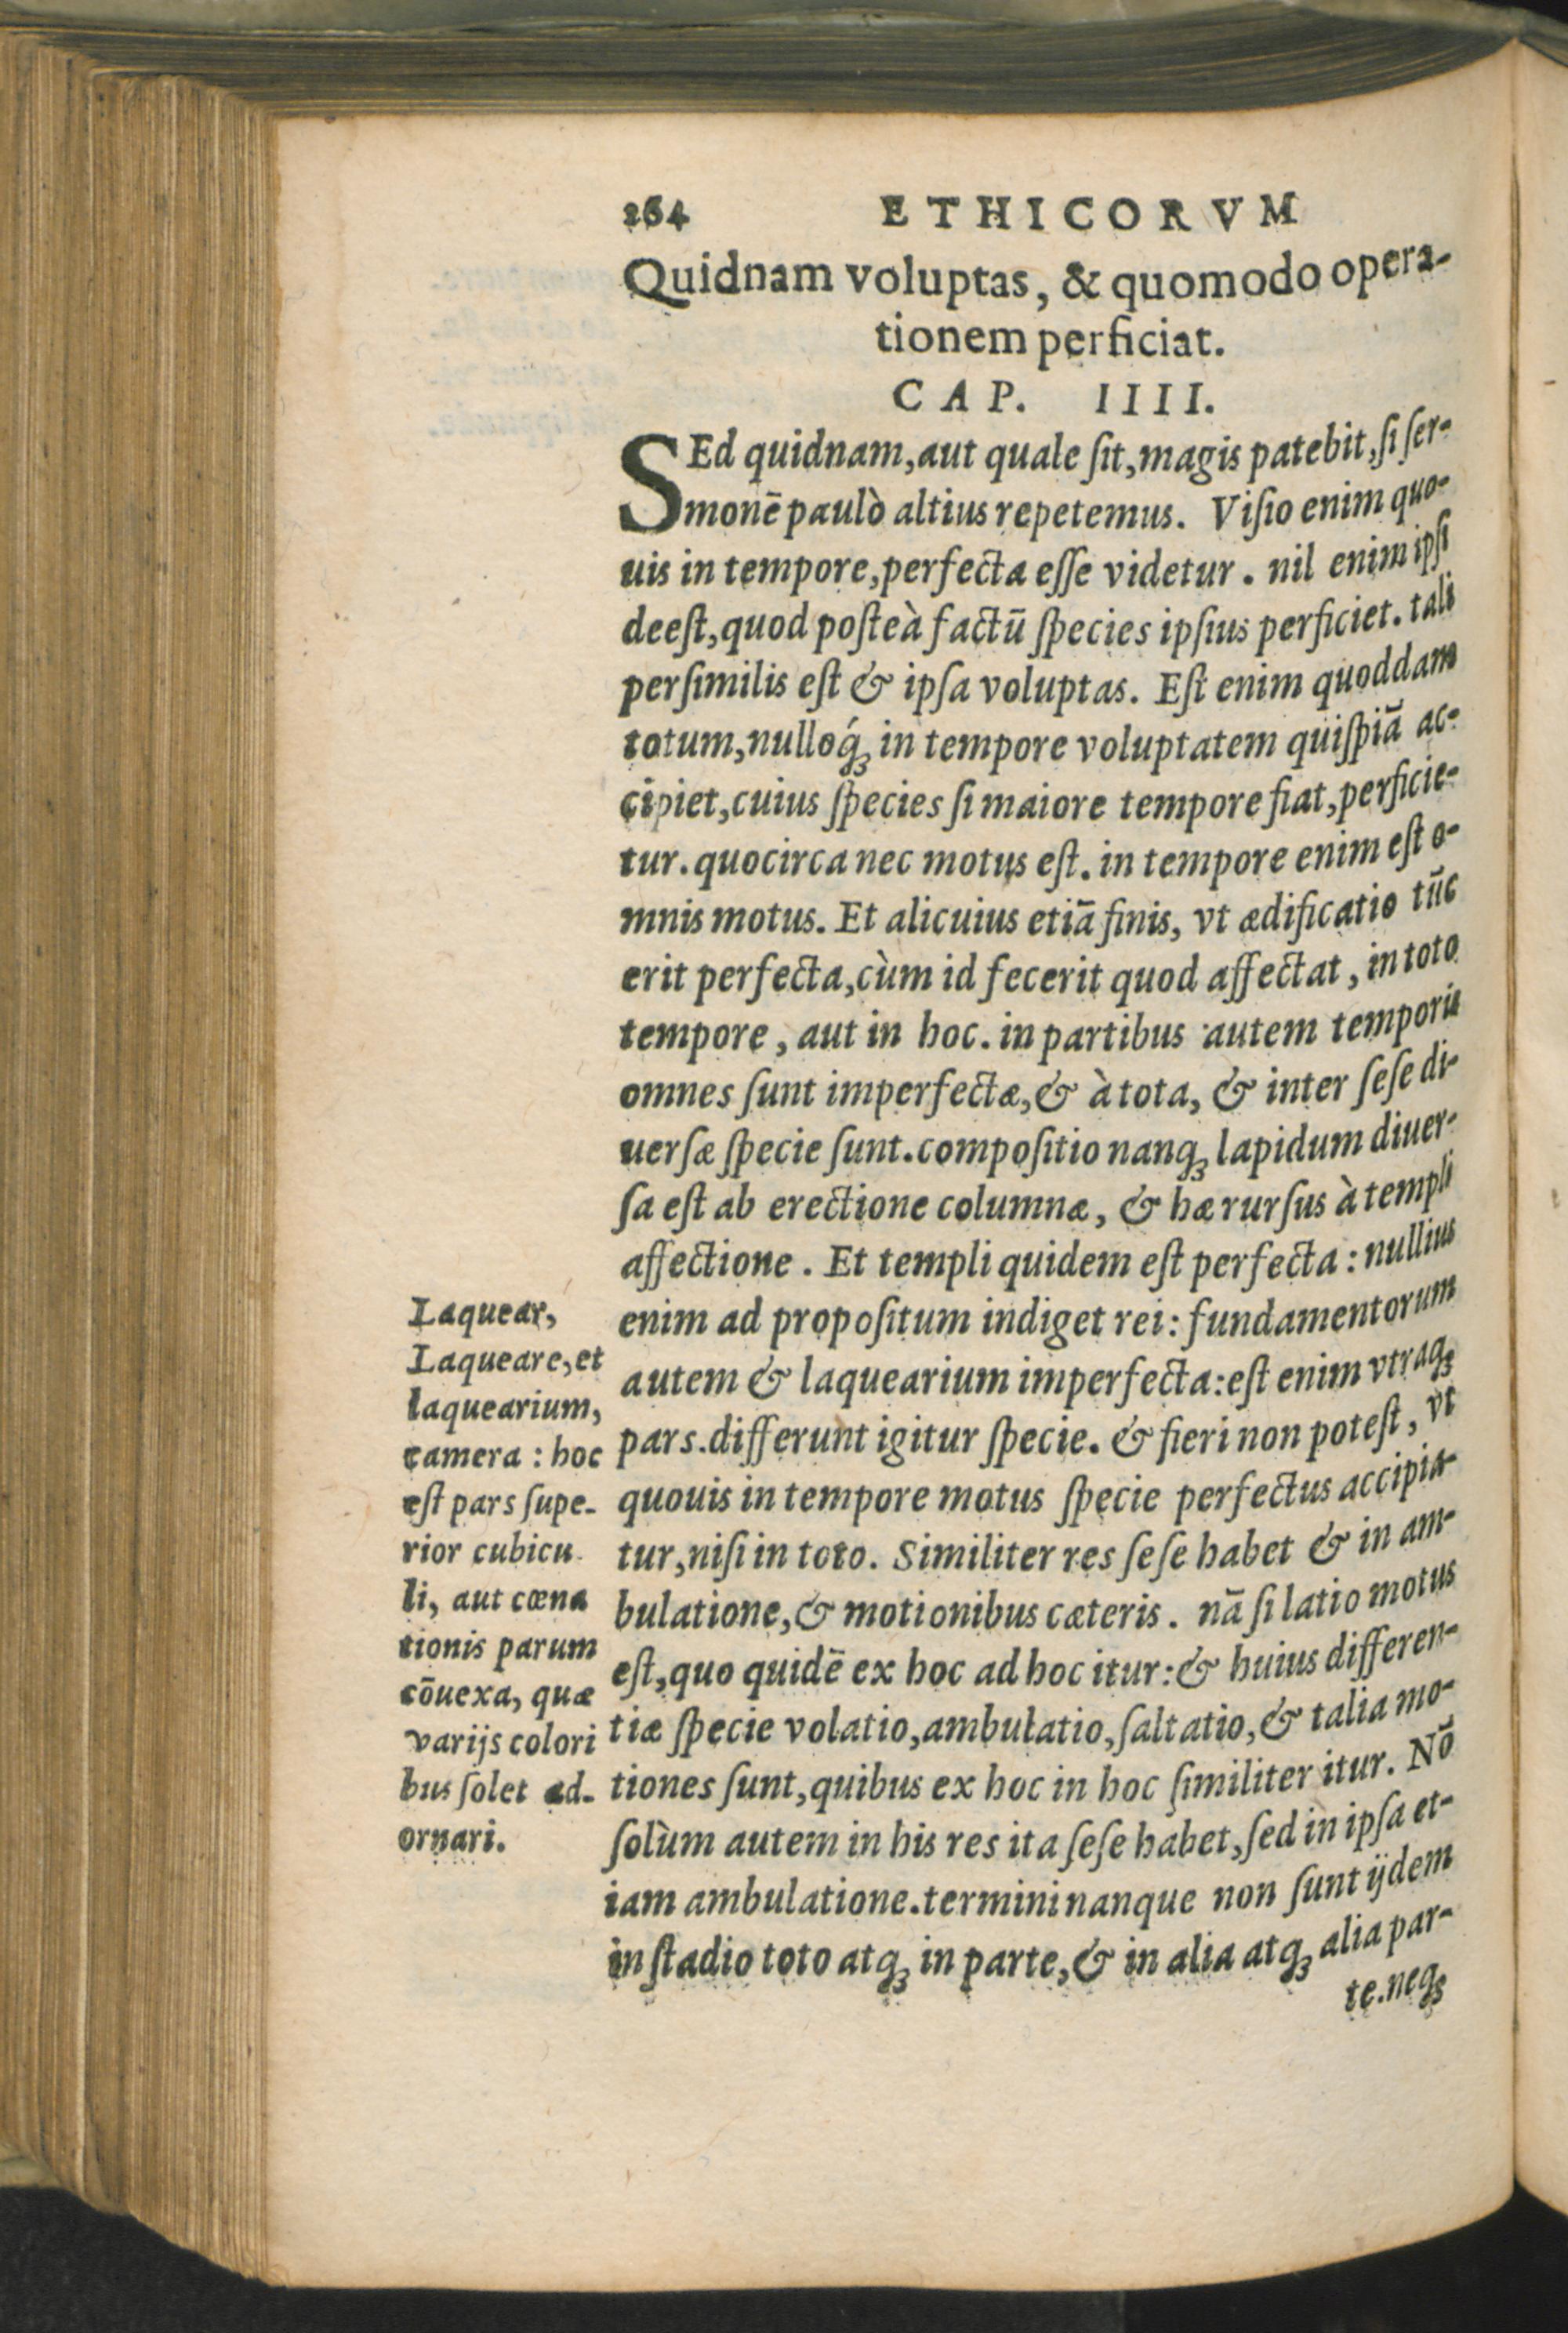 264 ETHICORVM
Quidnam voluptas, & quomodo opera-
tionem perficiat.
CAP. IIII.
SEd quidnam, aut quale ſit, magis patebit, ſi ſer-
monē paulò altius repetemus. Viſio enim quo-
uis in tempore, perfecta eſſe videtur. nil enim ipſi
deeſt, quod poſteà factū ſpecies ipſius perficiet. tali
perſimilis eſt & ipſa voluptas. Eſt enim quoddam
totum, nulloq́ꝫ in tempore voluptatem quiſpiā ac-
cipiet, cuius ſpecies ſi maiore tempore fiat, perficie-
tur. quocirca nec motus eſt. in tempore enim eſt o-
mnis motus. Et alicuius etiā finis, vt ædificatio tūc
erit perfecta, cùm id fecerit quod affectat, in toto
tempore, aut in hoc. in partibus autem temporis
omnes ſunt imperfectæ, & à tota, & inter ſeſe di-
uerſæ ſpecie ſunt. compoſitio nanqꝫ lapidum diuer-
ſa eſt ab erectione columnæ, & hæ rurſus à templi
affectione. Et templi quidem eſt perfecta: nullius
enim ad propoſitum indiget rei: fundamentorum
autem & laquearium imperfecta: eſt enim vtraqꝫ
pars. differunt igitur ſpecie. & fieri non poteſt, vt
quouis in tempore motus ſpecie perfectus accipia-
tur, niſi in toto. Similiter res ſeſe habet & in am-
bulatione, & motionibus cæteris. nā ſi latio motus
eſt, quo quidē ex hoc ad hoc itur: & huius differen-
tiæ ſpecie volatio, ambulatio, ſaltatio, & talia mo-
tiones ſunt, quibus ex hoc in hoc ſimiliter itur. Nō
ſolùm autem in his res ita ſeſe habet, ſed in ipſa et-
iam ambulatione. termini nanque non ſunt ijdem
in ſtadio toto atqꝫ in parte, & in alia atqꝫ alia par-
te. neqꝫ
Laquear,
Laqueare, et
laquearium,
camera: hoc
eſt pars ſupe-
rior cubicu-
li, aut cœna
tionis parum
cōuexa, quæ
varijs colori
bus ſolet ad-
ornari.